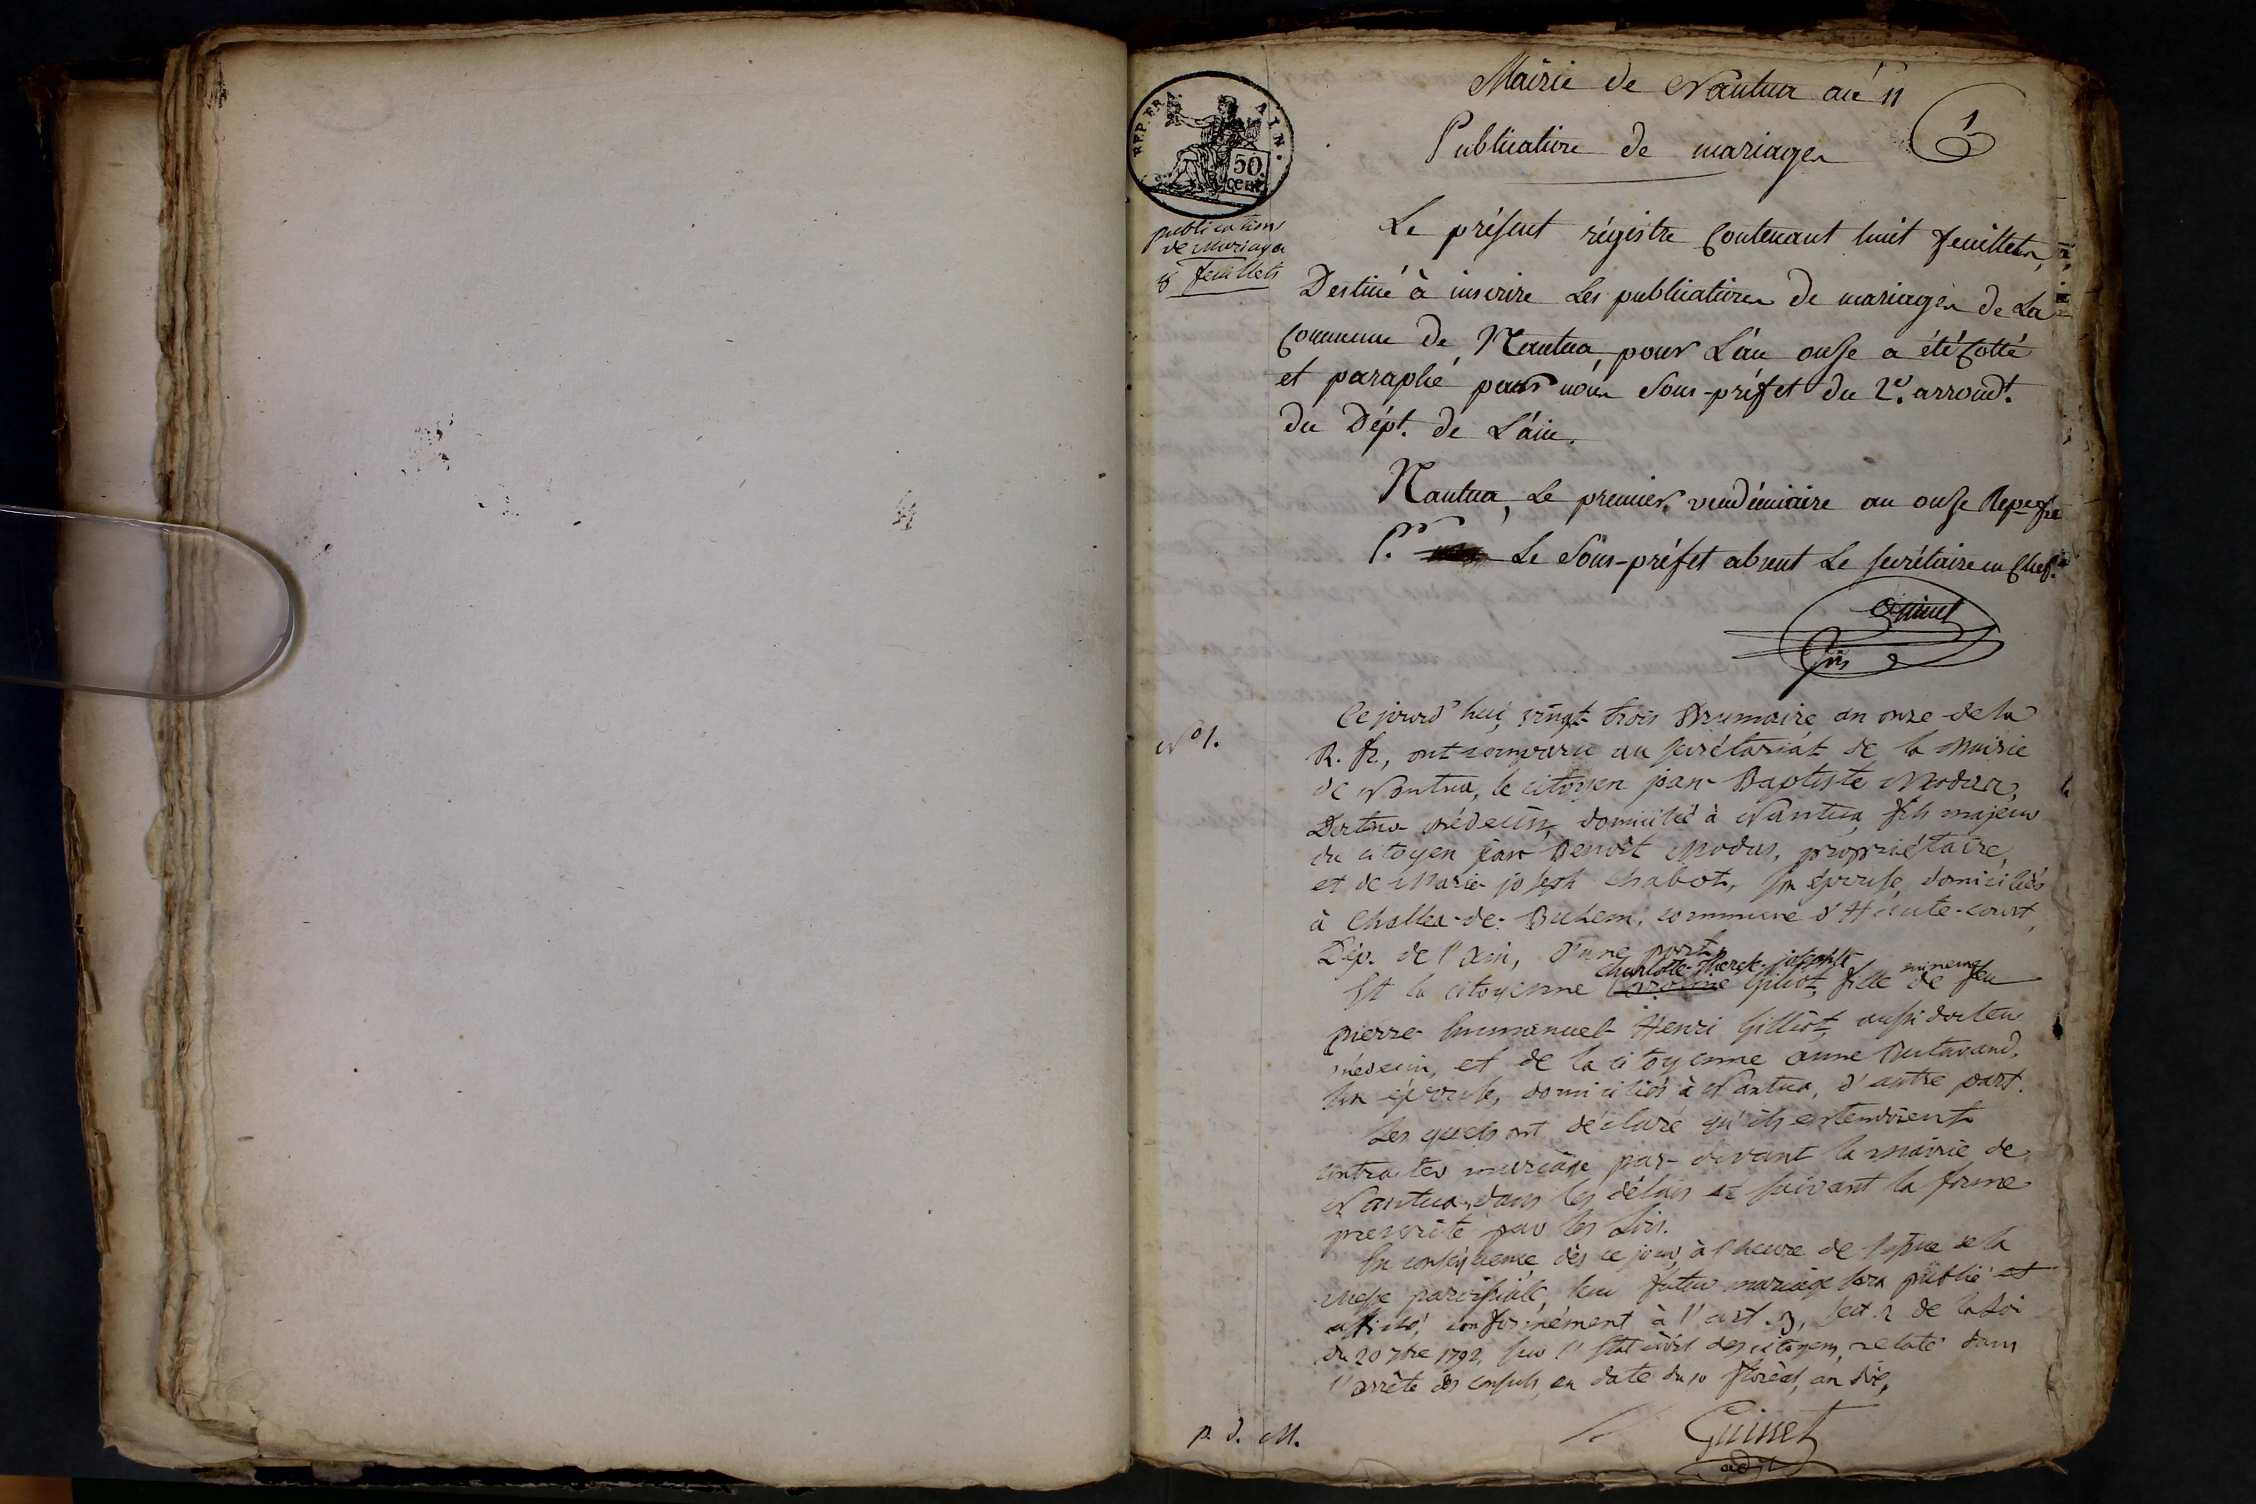 Mairie de Nantua an 11
Publications de mariages
1
REP. FRA. AIN.
50 cent
publications
de mariages
8 feuillets
Le présent régistre contenant huit feuillets,
Destiné à inscrire Les publications de mariages de La
Commune de Nantua, pour L'an onse a été Cotté
et paraphé par nous Sous-préfet du 2e. arrondt.
du Dépt. de L'ain.
Nantua, Le premier vendémiaire an onse
Pr. Le Sous-préfet absent Le secrétaire en chef.
Guinet
N° 1.
Ce jourd'hui, vingt-trois Brumaire an onze de la
R. fr, ont comparu au secrétariat de la Mairie
de Nantua, le citoyen jean Baptiste Modas,
Docteur médecin, domicilié à Nantua, fils majeur
du citoyen jean Benoit Modas, propriétaire,
et de Marie joseph Chabot, son épouse, domiciliés
à Challes-de-Buhem, commune d'Haute-court,
Dép. de l'Ain, d'une part.
Charlotte-Thérèse-josephte mineure
Et la citoyenne Caroline Gilliot, fille de feu
pierre Emmanuel Henri Gilliot, aussi docteur
médecin, et de la citoyenne anne
son épouse, domiciliés à Nantua, d'autre part.
Les quels ont déclaré qu'ils entendoient
contracter mariage par-devant la mairie de
Nantua, dans les délais et suivant la forme
prescrite par les Lois.
En conséquence, dès ce jour, à l'heure de l'issue de la
messe paroissiale, leur futur mariage sera publié et
affiché, conformément à l'art. 3, sect. 2 de la Loi
du 20 7bre 1792, sur l'Etat civil des citoyens, relaté dans
l'arrêté des consuls, en date du 10 floréal, an dix.
p. d. M.
Guinet
adjt